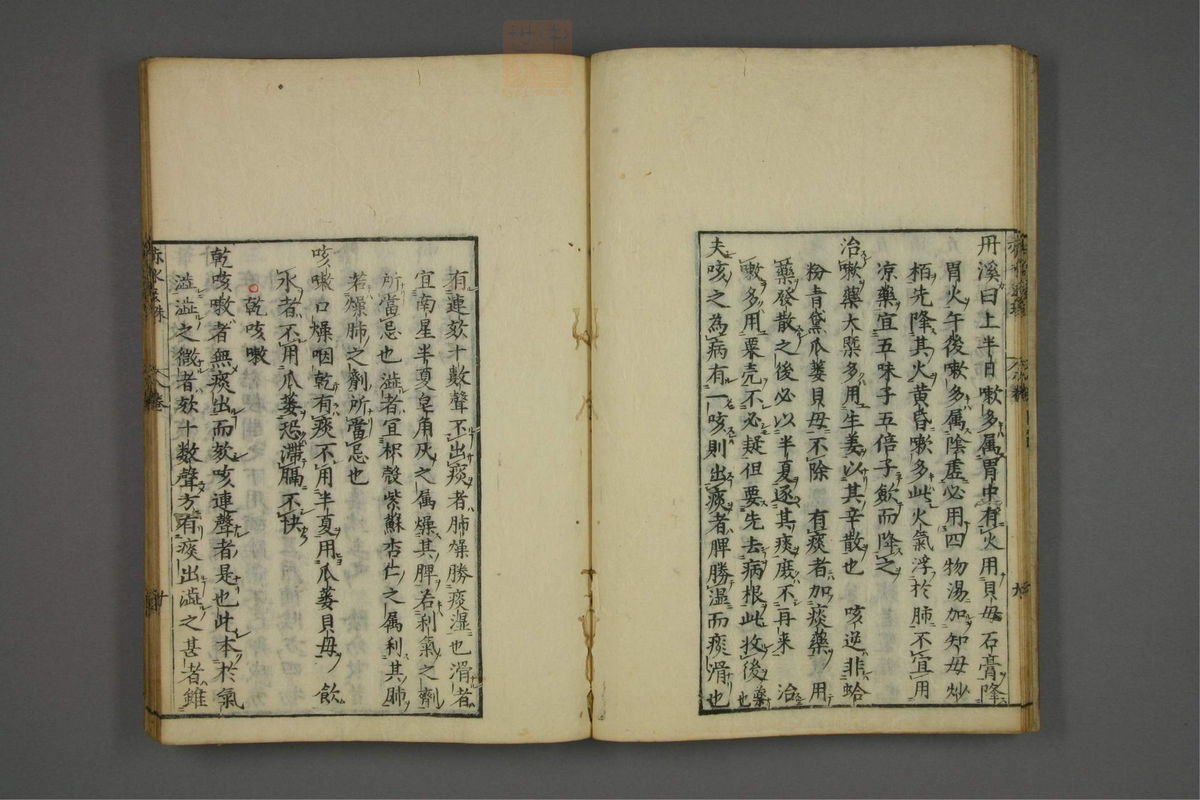 丹溪曰上半日嗽多属胃中有火用貝母石膏降
胃火午後嗽多属陰虚必用四物湯加知母炒
栢先降其火黄昏嗽多此火氣浮於肺不宜用
凉藥宜五味子五倍子歛而降之
治嗽藥大槩多用生姜以其辛散也 咳逆非蛤
粉青黛瓜蔞貝母不除 有痰者加痰藥 用
藥發散之後必以半夏逐其痰庶不再来 治
嗽多用粟壳不必疑但要先去病根此收後藥也
夫咳之為病有一咳則出痰者脾勝湿而痰滑也
有連欬十數聲不出痰者肺燥勝痰湿也滑者
宜南星半夏皂角灰之属燥其脾若利氣之劑
所當忌也澁者宜枳殻紫蘇杏仁之属利其肺
若燥肺之劑所當忌也
咳嗽口燥咽乾有痰不用半夏用瓜蔞貝母 飲
水者不用瓜蔞恐滞膈不快
乾咳嗽
乾咳嗽者無痰出而欬咳連聲者是也此本於氣
澁澁之微者欬十數聲方有痰出澁之甚者雖
赤水玄珠